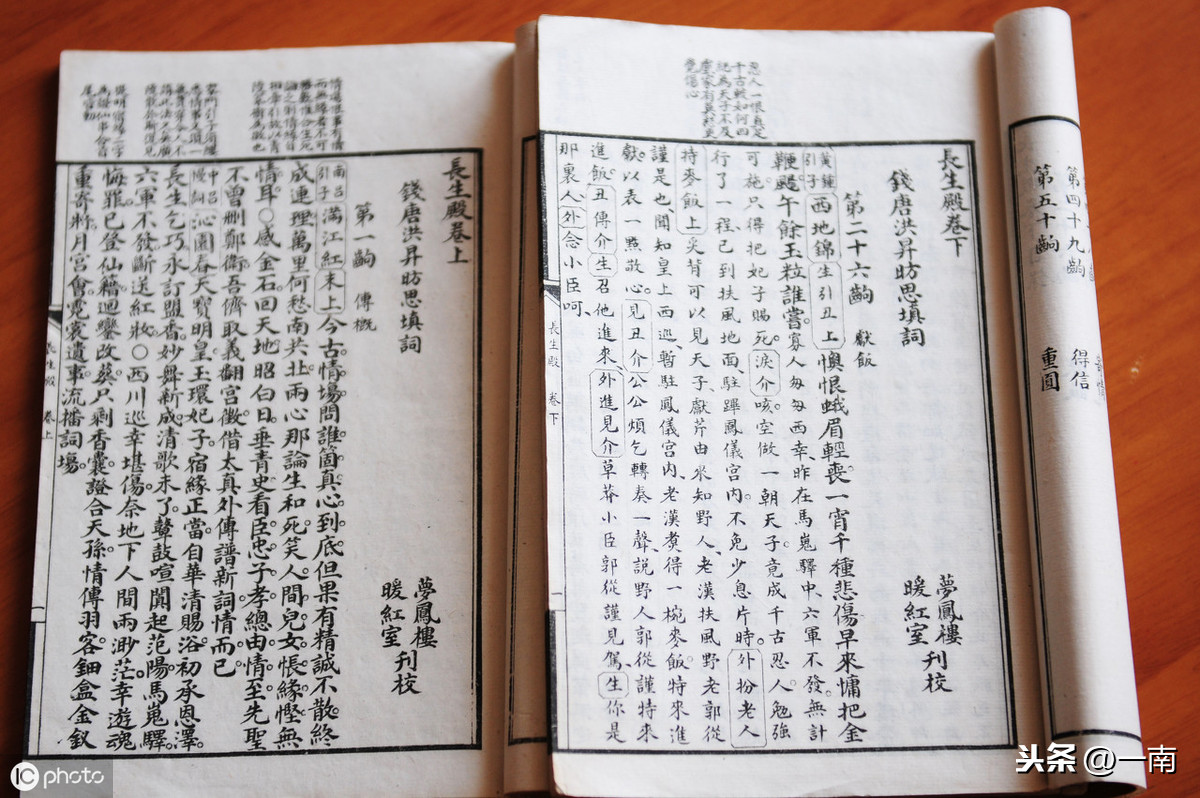 長生殿卷上
錢唐洪昇昉思填詞
夢鳳樓
暖紅室 刊校
第一齣 傳概
南呂引子 滿江紅 末上 今古情場。問誰箇真心到底。但果有精誠不散。終
成連理。萬里何愁南共北。兩心那論生和死。笑人間兒女悵緣慳。無
情耳。〇感金石。回天地。昭白日。垂青史。看臣忠子孝。總由情至。先聖
不曾刪鄭衛。吾儕取義翻宮徵。借太真外傳譜新詞。情而已。
中呂慢詞 沁園春 天寶明皇。玉環妃子。宿緣正當。自華清賜浴。初承恩澤。
長生乞巧。永訂盟香。妙舞新成。清歌未了。鼙鼓喧闐起范陽。馬嵬驛。
六軍不發。斷送紅妝。〇西川巡幸堪傷。奈地下人間兩渺茫。幸遊魂
悔罪。已登仙籍。迴鑾改葬。只剩香囊。證合天孫。情傳羽客。鈿盒金釵
重寄將。月宮會。霓裳遺事。流播詞場。
長生殿 卷上 一
忍人一恨真足
千古較如何四
紀為天子不及
盧家有莫愁更
覺傷心
長生殿卷下
錢唐洪昇昉思填詞
夢鳳樓
暖紅室 刊校
第二十六齣 獻飯
黃鐘引子 西地錦 生引丑上 懊恨蛾眉輕喪。一宵千種悲傷。早來慵把金
鞭颺。午餘玉粒誰嘗。寡人匆匆西幸、昨在馬嵬驛中、六軍不發。無計
可施、只得把妃子賜死。淚介 咳。空做一朝天子。竟成千古忍人。勉強
行了一程、已到扶風地面、駐蹕鳳儀宮內。不免少息片時。外扮老人
持麥飯上 炙背可以見天子、獻芹由來知野人、老漢扶風野老郭從
謹是也、聞知皇上西巡、暫駐鳳儀宮內、老漢煑得一椀麥飯、特來進
獻、以表一點敬心。見丑介 公公煩乞轉奏一聲、說野人郭從謹特來
進飯。丑傳介 生 召他進來、外進見介 草莽小臣郭從謹見駕、生 你是
那裏人、外 念小臣呵、
長生殿 卷下 一
第四十九齣 得信
第五十齣 重圓
IC photo
头条 @一南